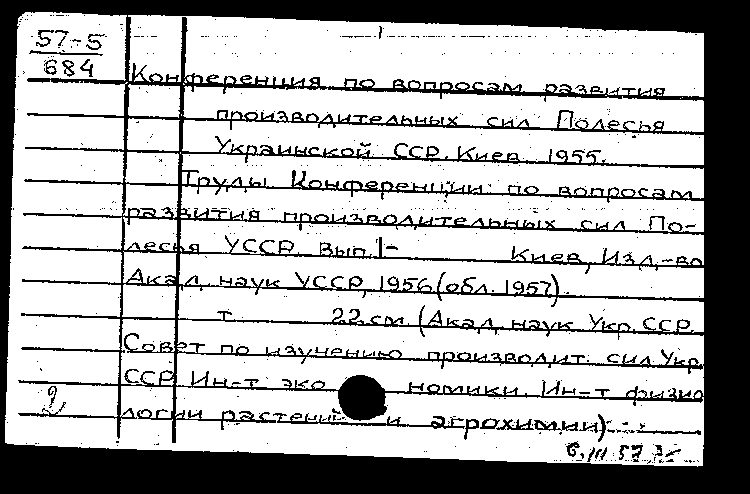 57-5
684
Конференция по вопросам развития
производительных сил Полесья
Украинской ССР. Киев. 1955.
Труды Конференции по вопросам
развития производительных сил По-
лесья УССР. Вып. 1- Киев, Изд.-во
Акад. наук УССР, 1956 (обл. 1957).
т. 22 см. (Акад. наук Укр. ССР.
Совет по изучению производит. сил Укр.
ССР Ин-т эко номики. Ин-т физио
2 логии растений и агрохимии)
6.III 57